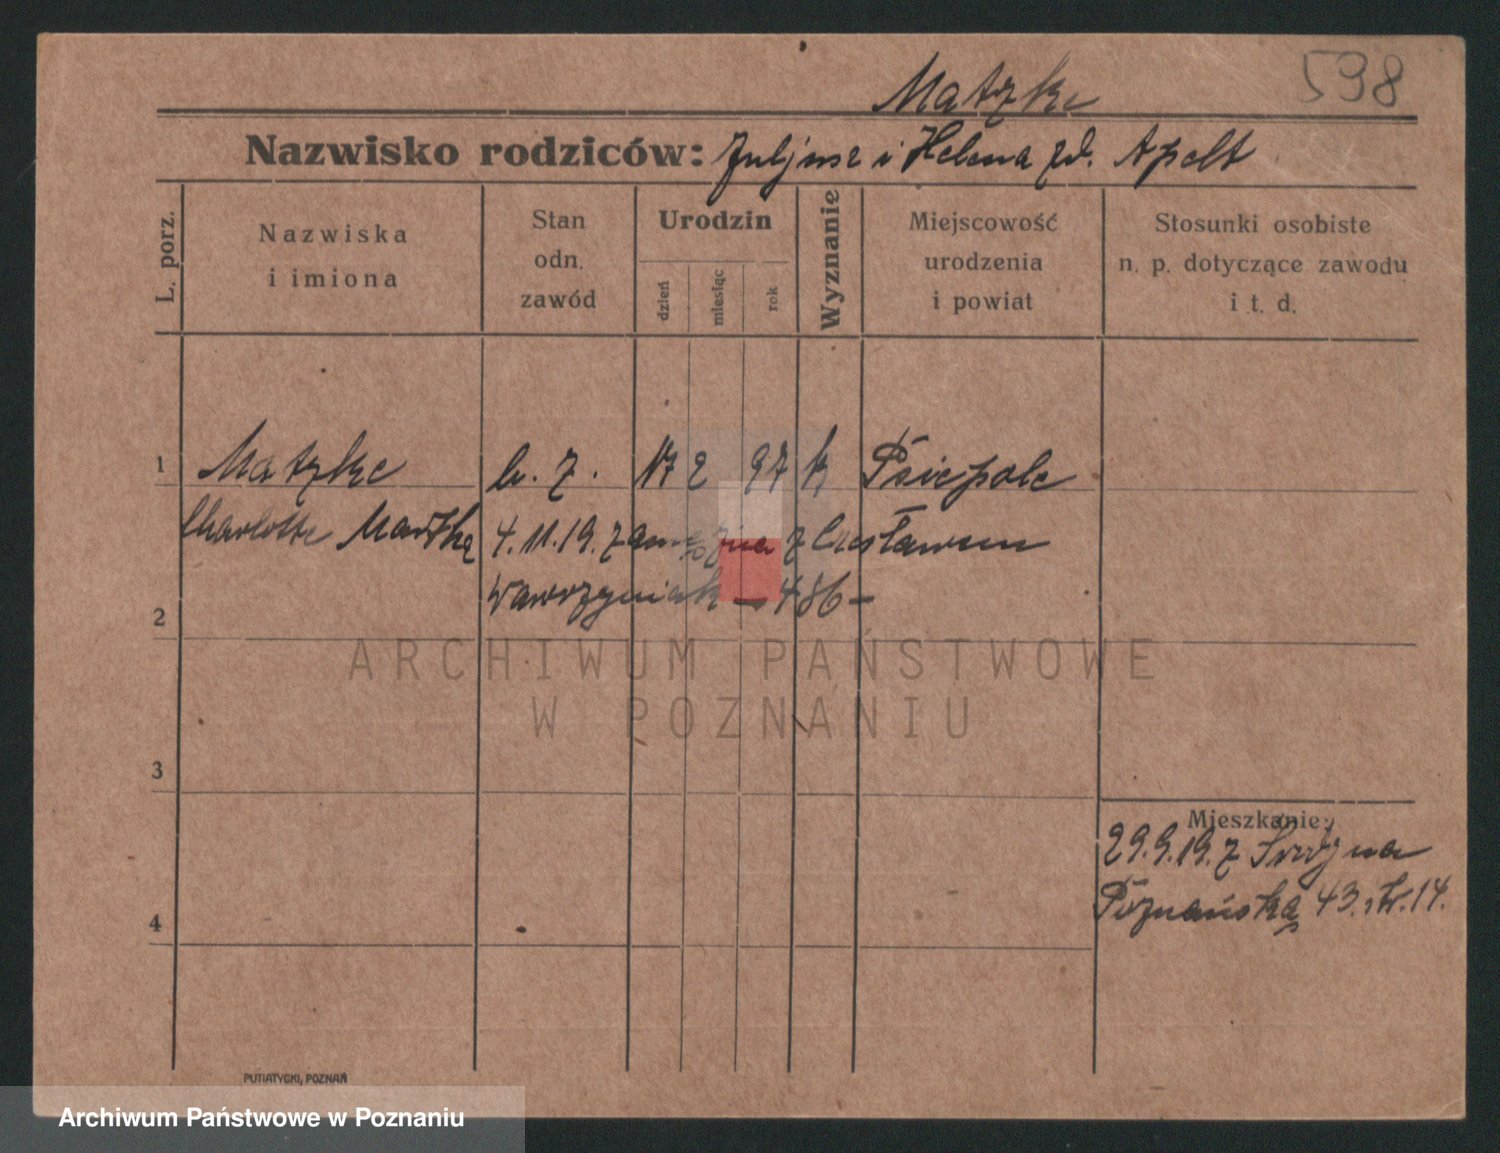 598
Matzke
Nazwisko rodziców: Juljusz i Helena zd. Apelt
L. porz.
Nazwiska
i imiona
Stan
odn.
zawód
Urodzin
dzień
miesiąc
rok
Wyznanie
Miejscowość
urodzenia
i powiat
Stosunki osobiste
n. p. dotyczące zawodu
i t. d.
1 Matzke b. z. 17 2 97 k Psiepole
Charlotte 4.11.19. zamężna z Czesławem
2 Wawrzyniak - 486 -
ARCHIWUM PAŃSTWOWE
W POZNANIU
3
Mieszkanie:
29.9.19. z
4 Poznańska 43. 14.
PUTIATYCKI, POZNAŃ
Archiwum Państwowe w Poznaniu